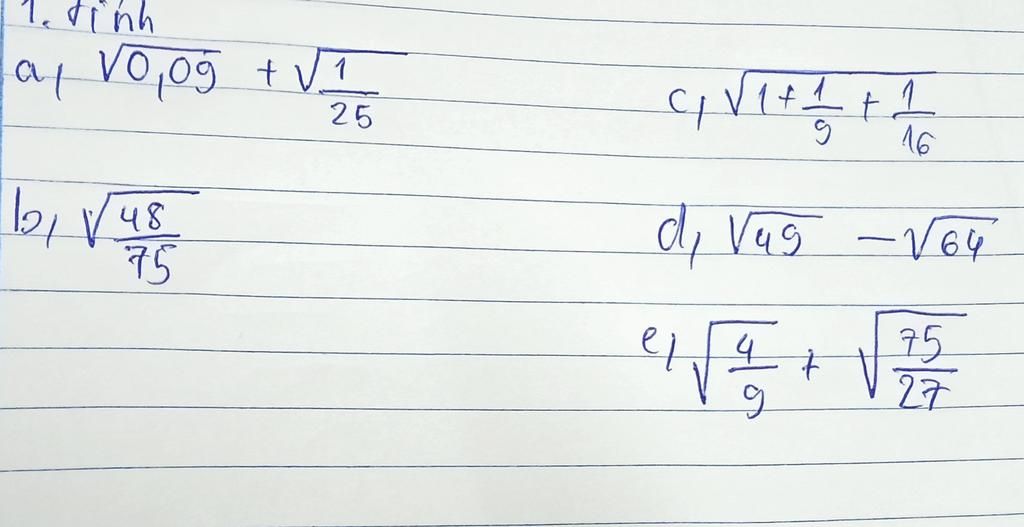 1. tính
a, √0,09 + √1/25
c, √1 + 1/9 + 1/16
b, √48/75
d, √49 − √64
e, √4/9 + √75/27